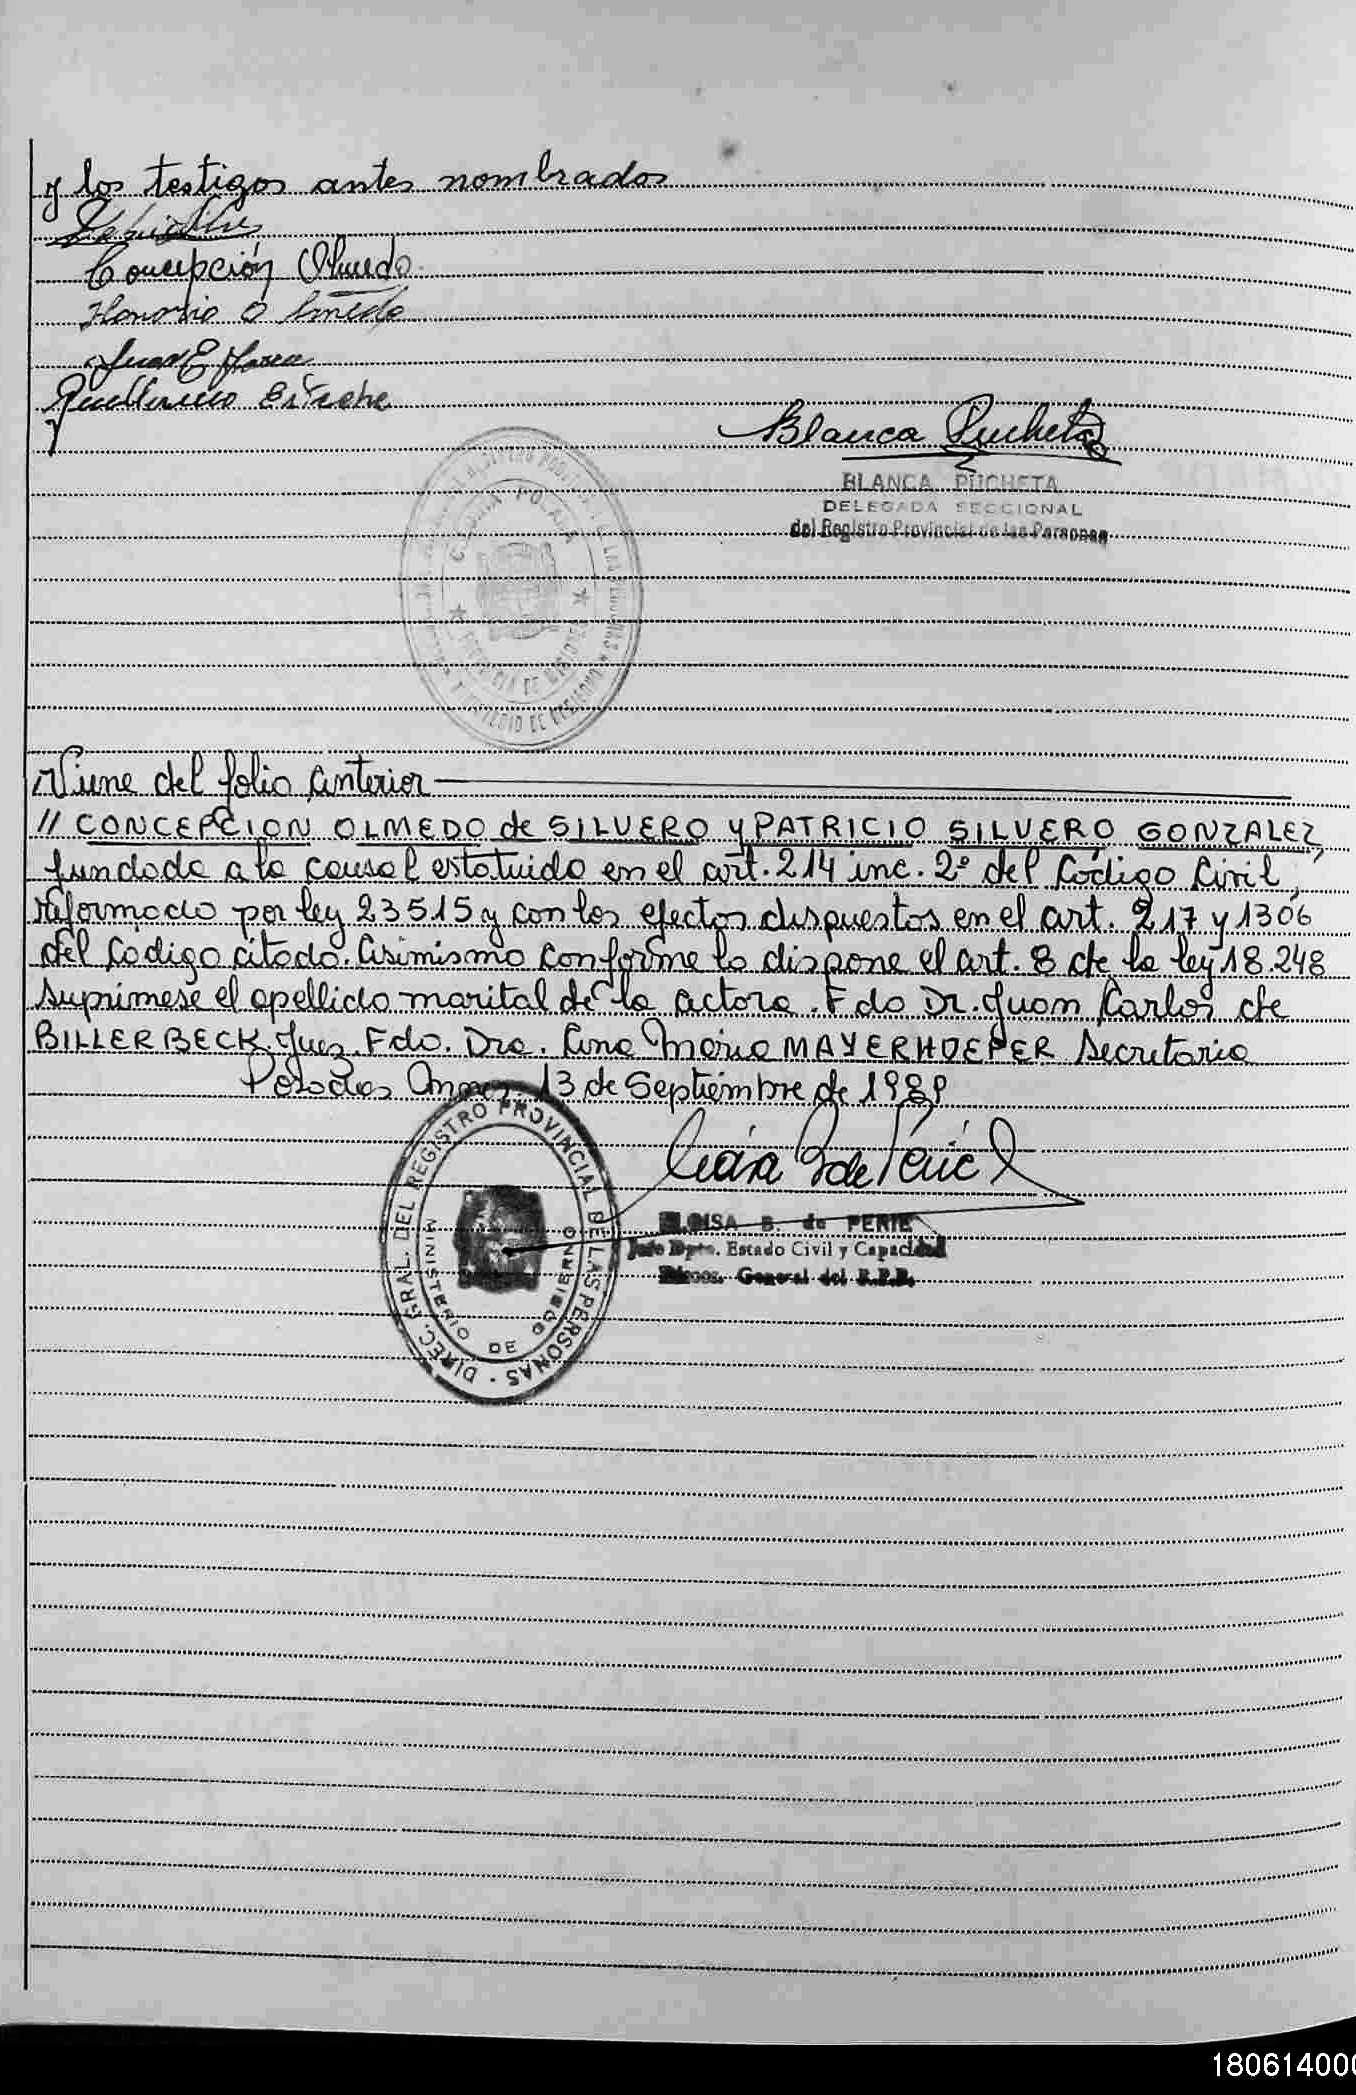 y los testigos antes nombrados
Concepción Olmedo
Honorio Olmedo
Juan E
Guillermo
Blanca Pucheta
BLANCA PUCHETA
DELEGADA SECCIONAL
del Registro Provincial de las Personas
COLONIA POLANA
PROVINCIA DE MISIONES
MINISTERIO DE GOBIERNO
Viene del folio anterior
// CONCEPCION OLMEDO de SILVERO y PATRICIO SILVERO GONZALEZ,
fundada a la causal estatuida en el art. 214 inc. 2º del Código Civil,
reformado por ley 23515 y con los efectos dispuestos en el art. 217 y 1306
del Código citado. Asimismo conforme lo dispone el art. 8 de la ley 18.248
suprimese el apellido marital de la actora. Fdo Dr. Juan Carlos de
BILLERBECK Juez. Fdo. Dra. Ana Maria MAYERHOEFER Secretaria
Posadas Mnes. 13 de Septiembre de 1989
DIREC. GRAL. DEL REGISTRO PROVINCIAL DE LAS PERSONAS
MINISTERIO DE GOBIERNO
ELOISA B. de PERIE
Jefe Dpto. Estado Civil y Capacidad
Direcc. General del R.P.P.
180614000